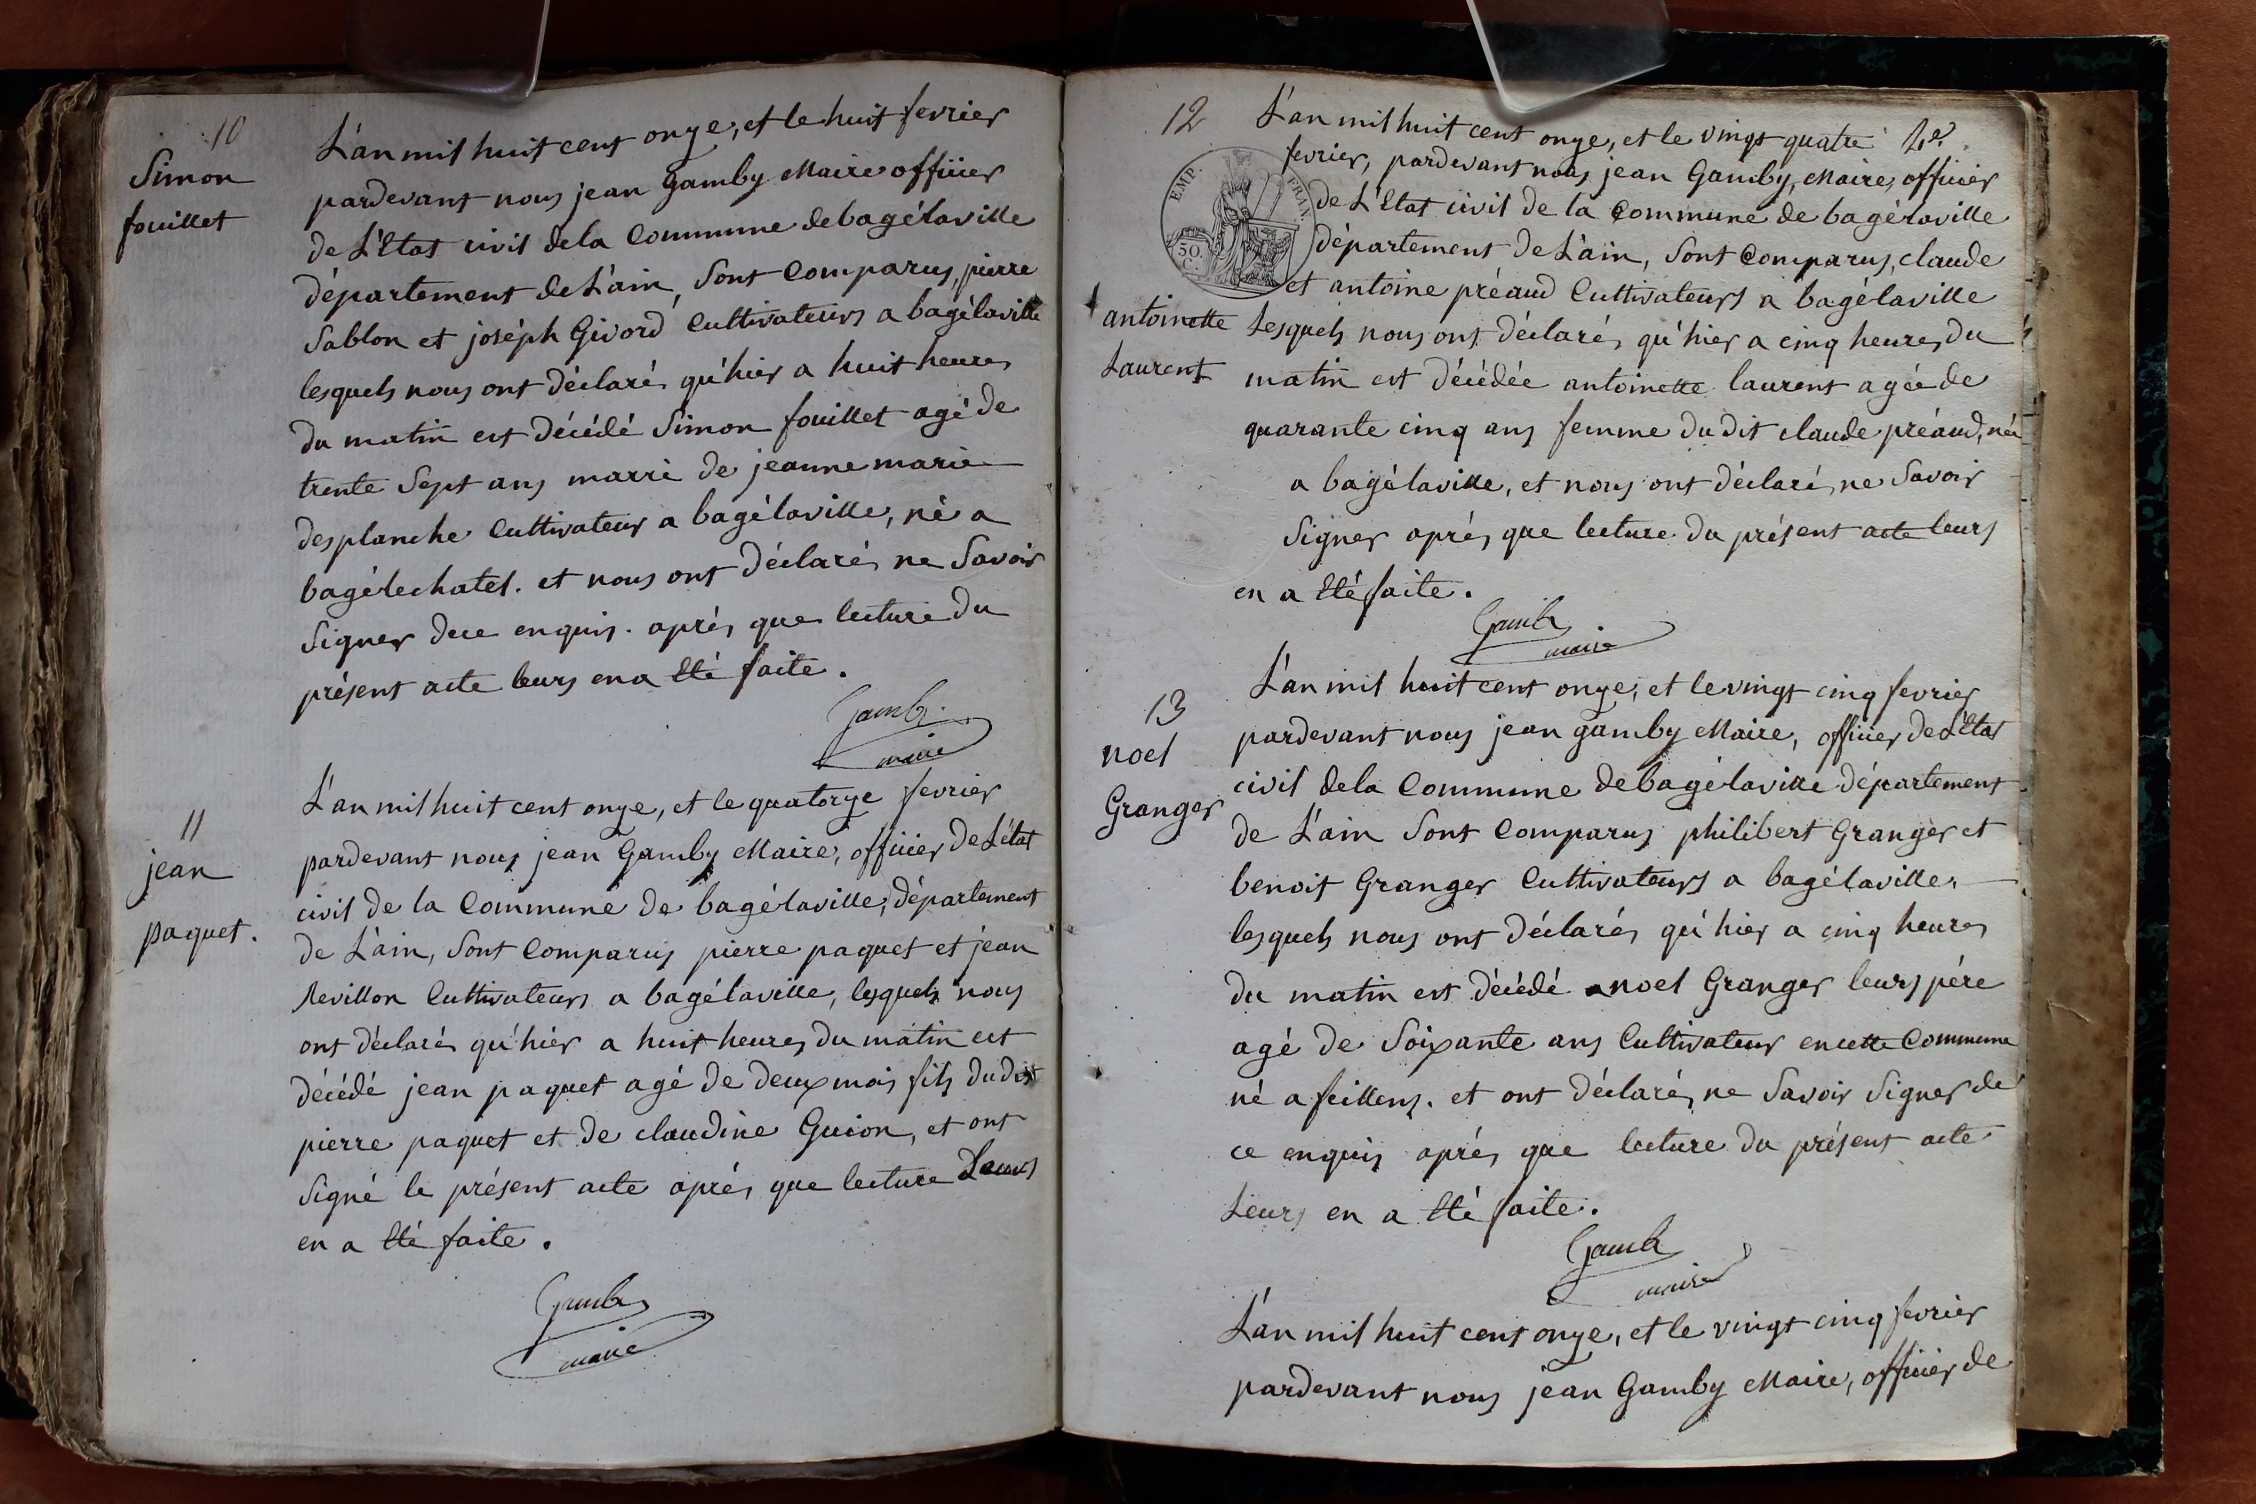 10
Simon
fouillet
L'an mil huit cent onze, et le huit fevrier
pardevant nous jean Gamby Maire officier
de L'Etat civil de la Commune de bagélaville
département de L'ain, Sont Comparus, pierre
Sablon et joséph Givord Cultivateurs a bagélaville
lesquels nous ont déclarés qu'hier a huit heures
du matin est décédé Simon fouillet agé de
trente Sept ans marri de jeanne marie
desplanche Cultivateur a bagélaville, né a
bagélechatel. et nous ont déclarés ne Savoir
Signer dece enquis. aprés que lecture du
présent acte leurs ena Eté faite.
Gamby
maire
11
jean
paquet.
L'an mil huit cent onze, et le quatorze fevrier
pardevant nous jean Gamby Maire, officier de L'état
civil de la Commune de bagélaville, département
de L'ain, Sont Comparus pierre paquet et jean
Revillon Cultivateurs a bagélaville, lesquels nous
ont déclarés qu'hier a huit heures du matin est
décédé jean paquet agé de deux mois fils dudit
pierre paquet et de claudine Guion, et ont
Signé le présent acte aprés que lecture Leurs
en a Eté faite.
Gamby
maire
12
L'an mil huit cent onze, et le vingt quatre
fevrier, pardevant nous jean Gamby, Maire, officier
de L'Etat civil de la Commune de bagélaville
département de L'ain, Sont Comparus, claude
et antoine préaud Cultivateurs a bagélaville
EMP. FRAN.
50
C.
antoinette
Laurent
Lesquels nous ont déclarés qu'hier a cinq heures du
matin est décédée antoinette laurent agée de
quarante cinq ans femme du dit claude préaud, née
a bagélaville, et nous ont déclaré, ne Savoir
Signer aprés que lecture du présent acte leurs
en a Eté faite.
Gamby
maire
13
noel
Granger
L'an mil huit cent onze, et le vingt cinq fevrier
pardevant nous jean gamby Maire, officier de L'Etat
civil dela Commune de bagélaville département
de L'ain Sont Comparus philibert Granger et
benoit Granger Cultivateurs a bagélaville.
lesquels nous ont déclarés qu'hier a cinq heures
du matin est décédé noel Granger leurs pére
agé de Soixante ans Cultivateur en cette Commune
né a feillens. et ont déclarés ne Savoir Signer de
ce enquis aprés que lecture du présent acte
Leurs en a Eté faite.
Gamby
maire
L'an mil huit cent onze, et le vingt cinq fevrier
pardevant nous jean Gamby Maire, officier de